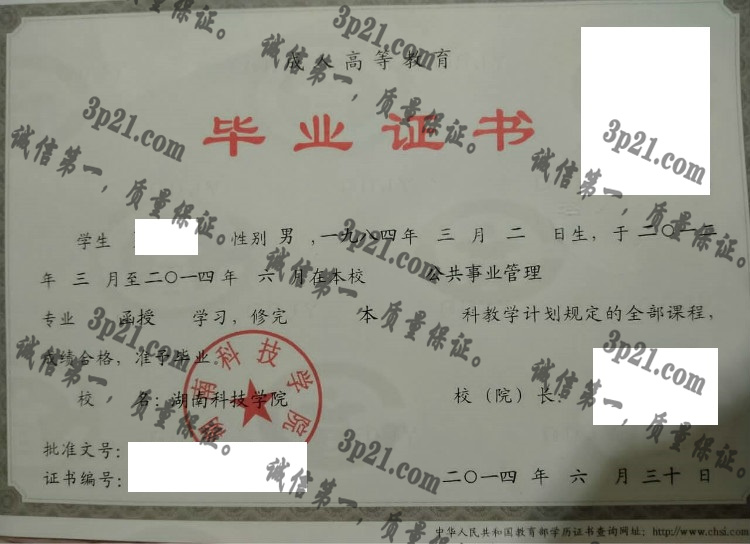 成人高等教育
毕业证书
学生 性别 男 ,一九八四年 三 月 二 日生,于 二〇一二
年 三 月至二〇一四年 六 月在本校 公共事业管理
专业 函授 学习,修完 本 科教学计划规定的全部课程,
成绩合格,准予毕业.
校 名:湖南科技学院
校(院)长:
湖南科技学院
批准文号:
证书编号:
二〇一四 年 六 月 三十 日
中华人民共和国教育部学历证书查询网址:http://www.chsi.com.cn
3p21.com
诚信第一,质量保证。
3p21.com
诚信第一,质量保证。
3p21.com
诚信第一,质量保证。
3p21.com
诚信第一,质量保证。
3p21.com
诚信第一,质量保证。
3p21.com
诚信第一,质量保证。
3p21.com
诚信第一,质量保证。